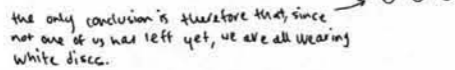 the only conclusion is therefore that, since
not one of us has left yet, we are all wearing
white discs.